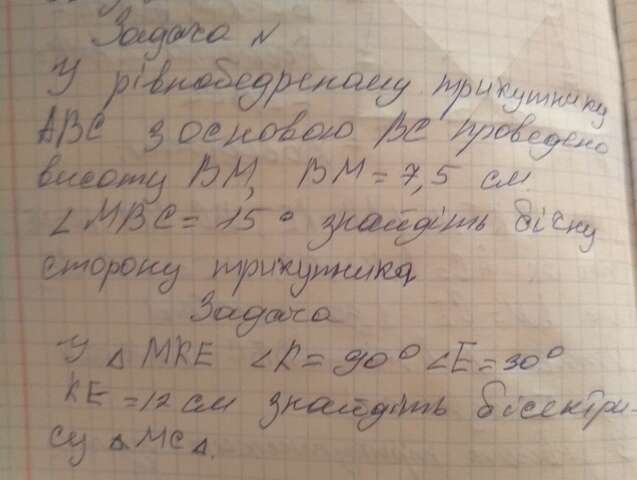 Задача N
У рівнобедреному трикутнику
ABC з основою BC проведено
висоту BM, BM = 7,5 см.
∠MBC = 15° знайдіть бічну
сторону трикутника
Задача
У △ MKE ∠K = 90° ∠E = 30°
KE = 12 см знайдіть бісектри-
су △ MC△.